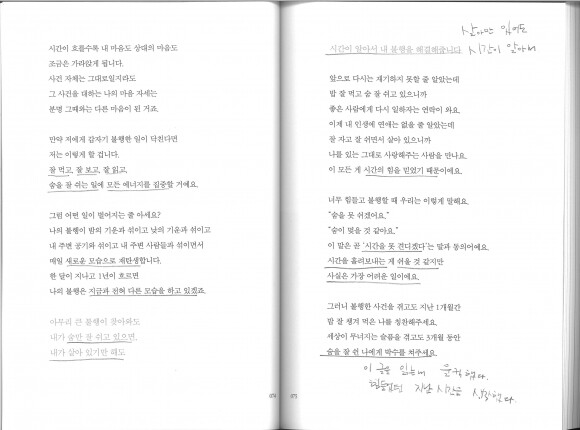 시간이 흐를수록 내 마음도 상대의 마음도
조금은 가라앉게 됩니다.
사건 자체는 그대로일지라도
그 사건을 대하는 나의 마음 자세는
분명 그때와는 다른 마음이 된 거죠.
만약 저에게 갑자기 불행한 일이 닥친다면
저는 이렇게 할 겁니다.
잘 먹고, 잘 보고, 잘 읽고,
숨을 잘 쉬는 일에 모든 에너지를 집중할 거예요.
그럼 어떤 일이 벌어지는 줄 아세요?
나의 불행이 밤의 기운과 섞이고 낮의 기운과 섞이고
내 주변 공기와 섞이고 내 주변 사람들과 섞이면서
매일 새로운 모습으로 재탄생합니다.
한 달이 지나고 1년이 흐르면
나의 불행은 지금과 전혀 다른 모습을 하고 있겠죠.
아무리 큰 불행이 찾아와도
내가 숨만 잘 쉬고 있으면,
내가 살아 있기만 해도
074
살아만 있어도
시간이 알아서
시간이 알아서 내 불행을 해결해줍니다.
앞으로 다시는 재기하지 못할 줄 알았는데
밥 잘 먹고 숨 잘 쉬고 있으니까
좋은 사람에게 다시 일하자는 연락이 와요.
이제 내 인생에 연애는 없을 줄 알았는데
잘 자고 잘 쉬면서 살아 있으니까
나를 있는 그대로 사랑해주는 사람을 만나요.
이 모든 게 시간의 힘을 믿었기 때문이에요.
너무 힘들고 불행할 때 우리는 이렇게 말해요.
"숨을 못 쉬겠어요."
"숨이 멎을 것 같아요."
이 말은 곧 '시간을 못 견디겠다'는 말과 동의어예요.
시간을 흘려보내는 게 쉬울 것 같지만
사실은 가장 어려운 일이에요.
그러니 불행한 사건을 겪고도 지난 1개월간
밥 잘 챙겨 먹은 나를 칭찬해주세요.
세상이 무너지는 슬픔을 겪고도 3개월 동안
숨을 잘 쉰 나에게 박수를 쳐주세요.
이 글을 읽는데 울컥했다.
힘들었던 지난 시간을
075